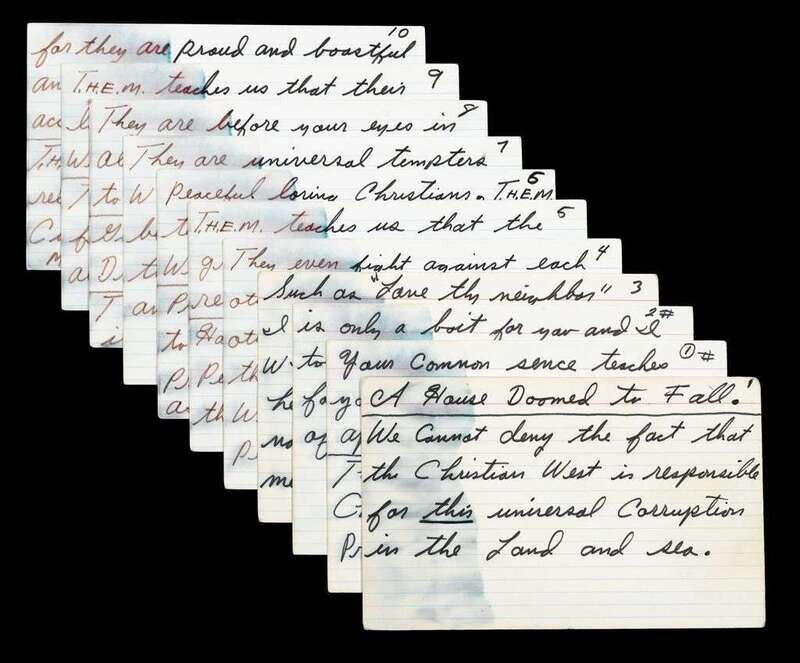 10
for they are proud and boastful
9
T.H.E.M. teaches us that their
8
They are before your eyes in
7
They are universal tempters
6
Peaceful loving Christians. T.H.E.M.
5
T.H.E.M. teaches us that the
4
They even fight against each
3
Such as "Love thy neighbor"
2#
I is only a bait for you and I
1#
Your Common sence teaches
A House Doomed to Fall!
We Cannot deny the fact that
the Christian West is responsible
for this universal Corruption
in the Land and sea.